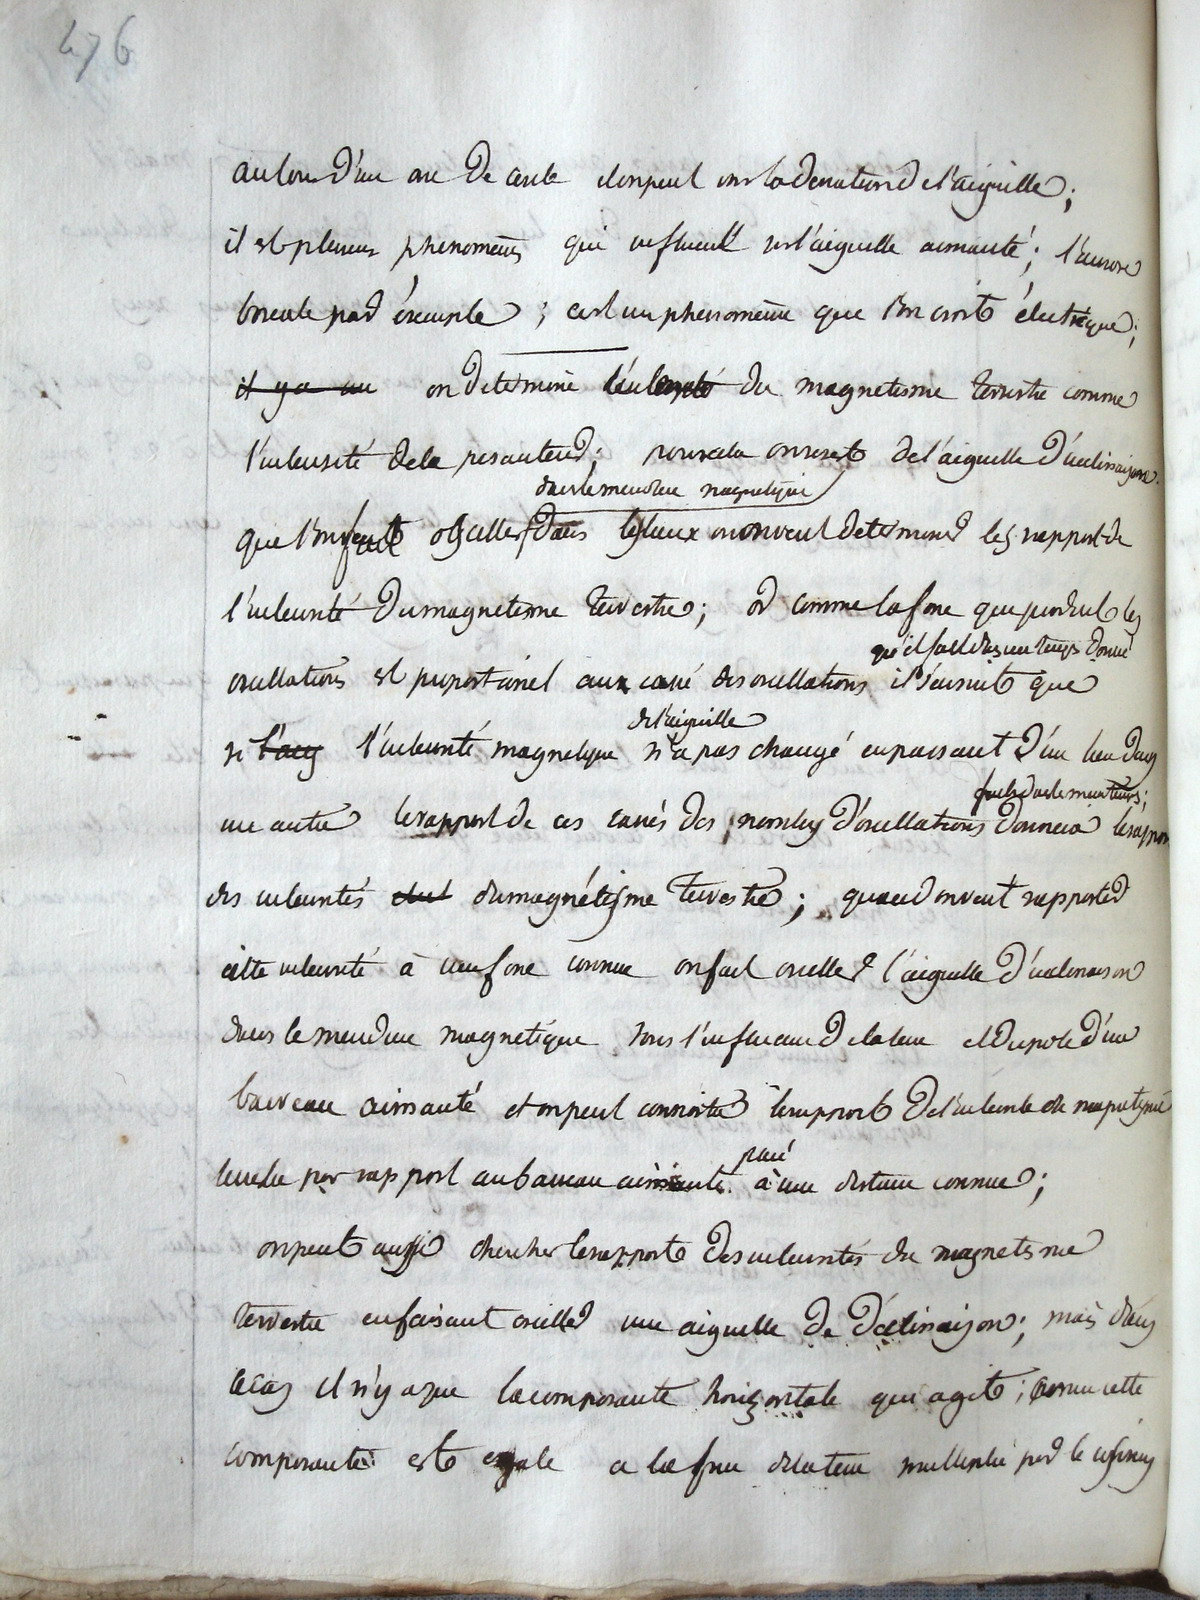 476
autour d'un arc de cercle et on peut voir la déviation de l'aiguille;
il est plusieurs phenomenes qui influent sur l'aiguille aimanté; l'aurore
boreale par éxemple; c'est un phenomene que l'on croit électrique;
il y a un on determine l'intensité du magnetisme terrestre comme
l'intensité de la pesanteur; pour cela on se sert de l'aiguille d'inclinaison
dans le meridien magnetique
que l'on fait osciller dans les lieux ou on veut determiner les rapport de
l'intensité du magnetisme terrestre; or comme la force qui produit les
qu'il fait dans un temps donné
oscillations est proportionel aux carré des oscillations il s'ensuit que
de l'aiguille
si l'intensité magnetique n'a pas changé en passant d'un lieu dans
faits dans le meme tems;
un autre le rapport de ces carrés des nombres d'oscillations donnera le rapport
des intensités du magnétisme terrestre; quand on veut rapporter
cette intensité à une force connue on fait osciller l'aiguille d'inclinaison
dans le meridien magnetique sous l'influence de la terre et du pole d'un
barreau aimanté et on peut connoitre le rapport de l'intensité du magnetisme
placé
terrestre par rapport au barreau aimanté à une distance connue;
on peut aussi chercher le rapport des intensités du magnetisme
terrestre en faisant osciller une aiguille de déclinaison; mais dans
ce cas il n'y a que la composante horizontale qui agit; comme cette
composante est egale a la force de la terre multiplié par le cosinus